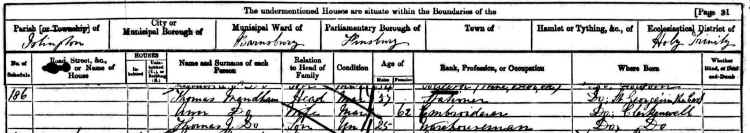 The undermentioned Houses are situate within the Boundaries of the [Page 31
Parish [or Township] of
City or Municipal Borough of
Municipal Ward of
Parliamentary Borough of
Town of
Hamlet or Tything, &c., of
Ecclesiastical District of
Islington
Barnsbury
Finsbury
Holy Trinity
No. of Schedule
Road, Street, &c., or Name of House
HOUSES
In-habited
Name and Surname of each Person
Relation to Head of Family
Condition
Age of
Males
Females
Rank, Profession, or Occupation
Where Born
Whether Blind, or Deaf-and-Dumb
186 Thomas Head Mar 57 Do; St George in the East
Ann Do Wife Mar 62 Embroiderer Do; Clerkenwell
Thomas J. Do Son Un 25 Warehouseman Do; Do